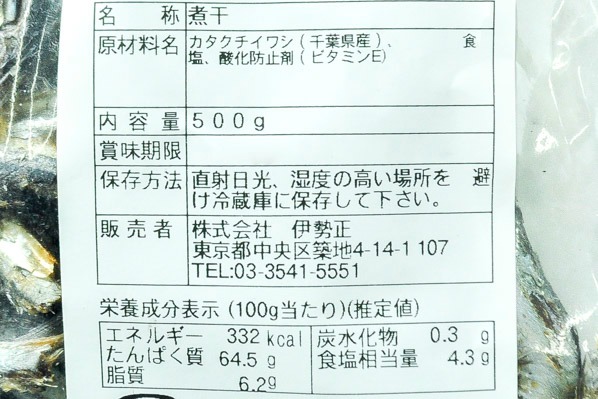 名　称 煮干
原材料名 カタクチイワシ(千葉県産)、　食
塩、酸化防止剤(ビタミンE)
内容量 500g
賞味期限
保存方法 直射日光、湿度の高い場所を　避
け冷蔵庫に保存して下さい。
販売者 株式会社　伊勢正
東京都中央区築地4-14-1 107
TEL:03-3541-5551
栄養成分表示 (100g当たり)(推定値)
エネルギー 332 kcal 炭水化物 0.3 g
たんぱく質 64.5 g 食塩相当量 4.3 g
脂質 6.2g